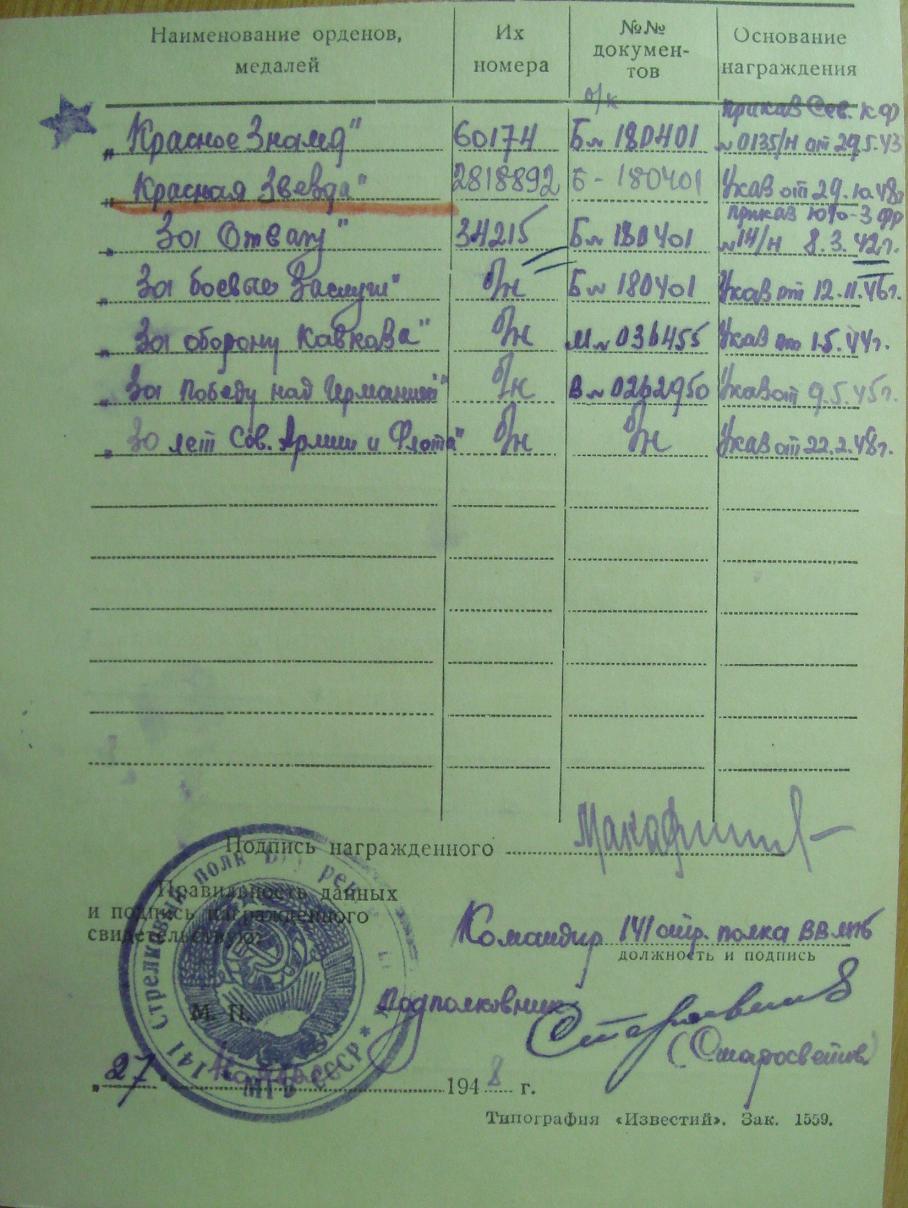 Наименование орденов, медалей | Их номера | №№ документов | Основание награждения
б/к приказ Сев. К ФР
„Красное Знамя" 60174 Б № 180401 № 0135/н от 29.5.43
„Красная Звезда" 2818892 Б - 180401 Указ от 29.10.48г
приказ Юго-З фр
„За Отвагу" 34215 Б № 180401 № 14/н 8.3.42г.
„За боевые Заслуги" б/н Б № 180401 Указ от 12.11.46г.
„За оборону Кавказа" б/н М № 036455 Указ от 1.5.44г.
„За Победу над Германией" б/н В № 0262950 Указ от 9.5.45г.
„30 лет Сов. Армии и Флота" б/н б/н Указ от 22.2.48г.
Подпись награжденного
Правильность данных
и подпись награжденного
свидетельствую:
Командир 141 стр. полка ВВ МГБ
должность и подпись
М. П.
Подполковник
(Старосветов)
„27" 1948 г.
141 Стрелковый полк МГБ СССР *
Типография «Известий». Зак. 1559.